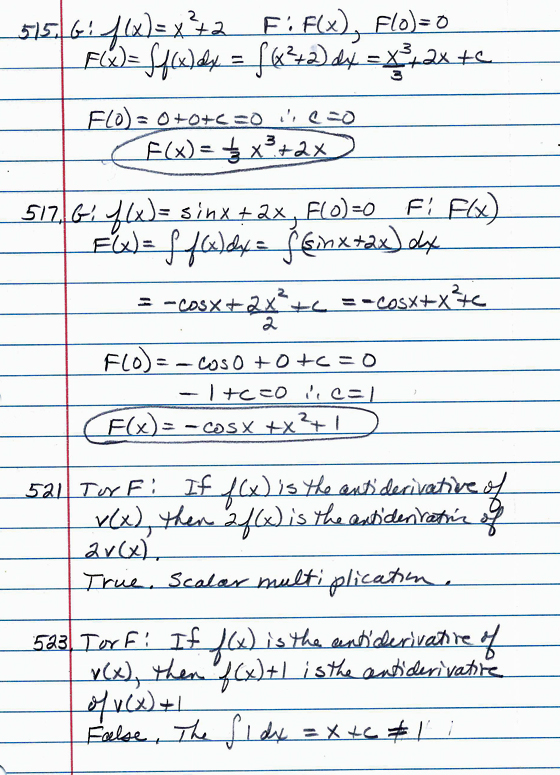 515. G: f(x) = x²+2   F: F(x), F(0)=0
F(x) = ∫f(x)dx = ∫(x²+2)dx = x³/3 + 2x + c
F(0) = 0+0+c = 0 ∴ c=0
F(x) = 1/3 x³ + 2x
517. G: f(x) = sinx + 2x, F(0)=0   F: F(x)
F(x) = ∫f(x)dx = ∫(sinx+2x) dx
= -cosx + 2x²/2 + c = -cosx + x² + c
F(0) = -cos0 + 0 + c = 0
-1 + c = 0 ∴ c=1
F(x) = -cosx + x² + 1
521 T or F: If f(x) is the antiderivative of
v(x), then 2f(x) is the antiderivative of
2v(x).
True. Scalar multiplication.
523. T or F: If f(x) is the antiderivative of
v(x), then f(x)+1 is the antiderivative
of v(x)+1
False. The ∫1dx = x+c ≠ 1